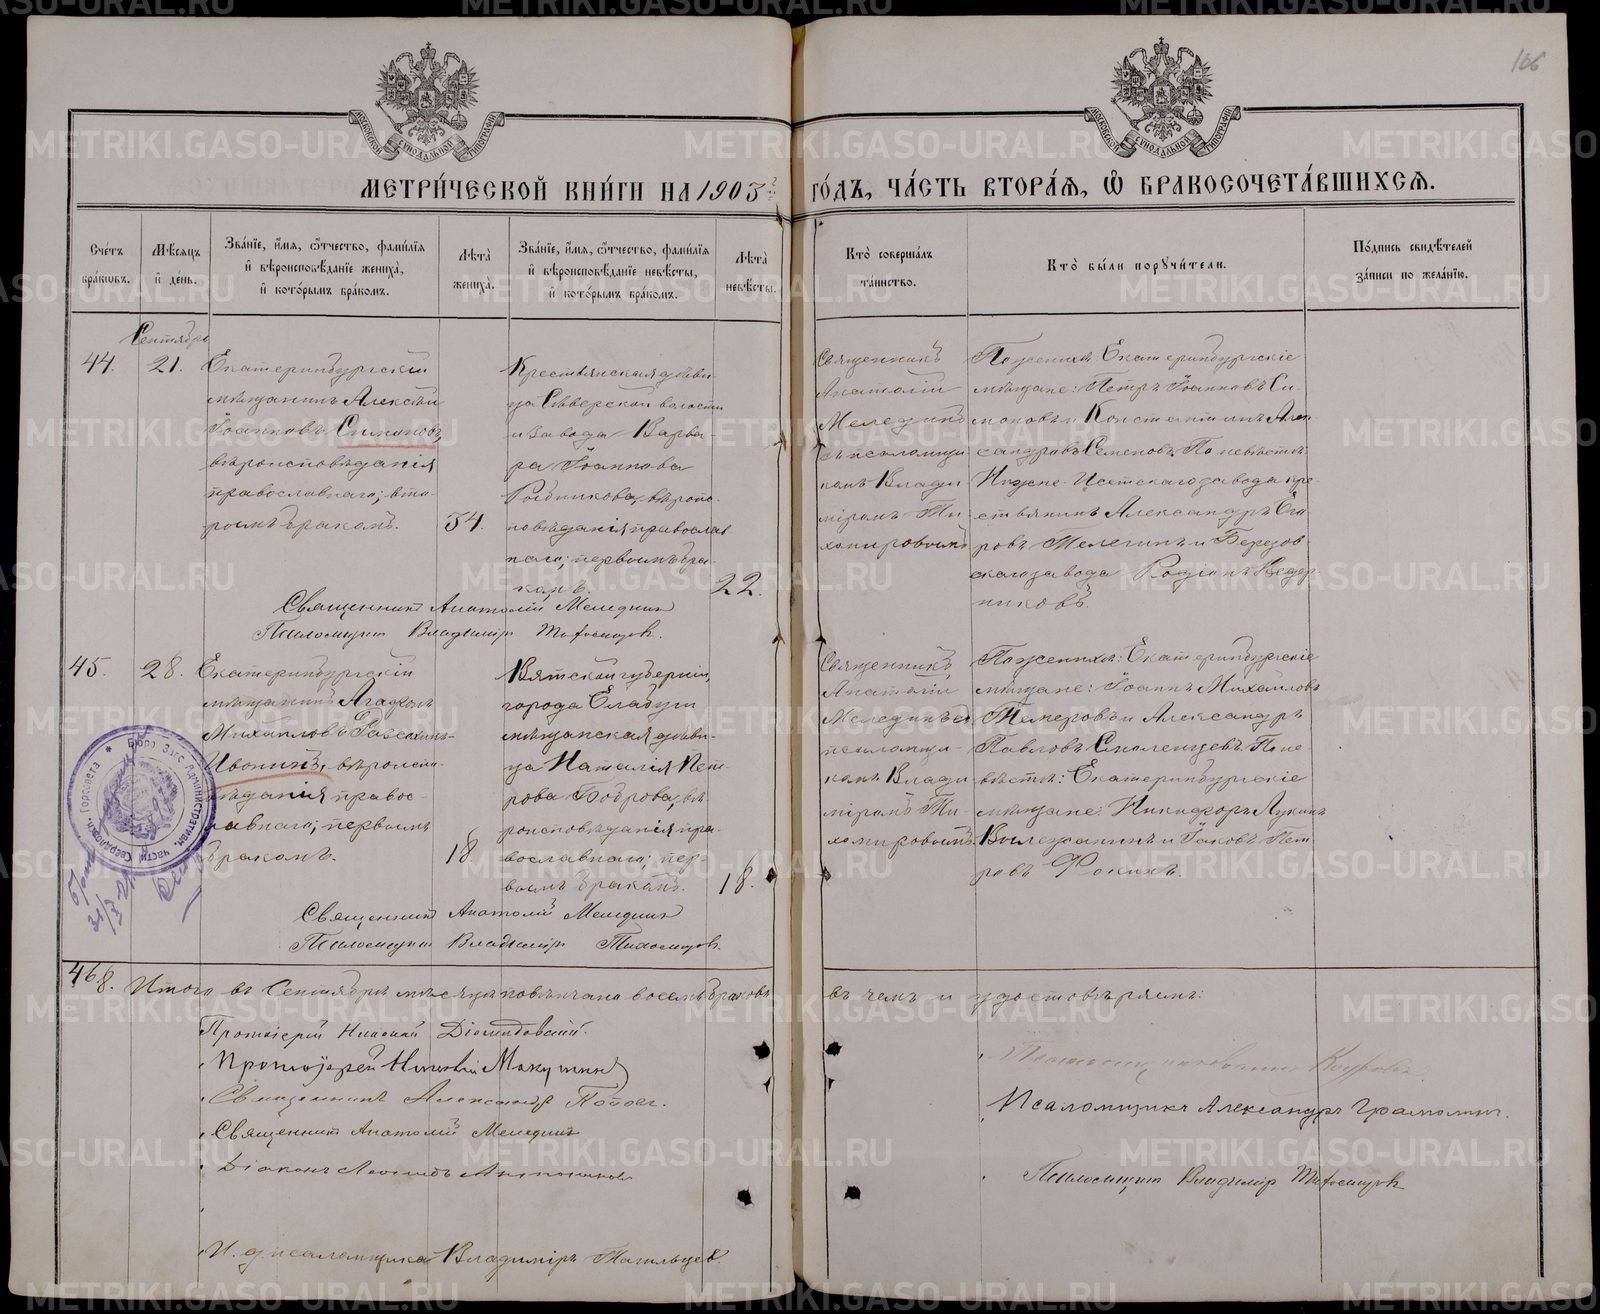 166
МЕТРИ́ЧЕСКОЙ КНИ́ГИ НА 1903 го́дъ, ча́сть втора́ѧ, ѽ бракосочета́вшихсѧ.
Сче́тъ бра́ковъ.
Мѣ́сѧцъ и҆ де́нь.
Зва́нїе, и҆́мѧ, ѻ҆́тчество, фами́лїѧ и҆ вѣроисповѣ́данїе жениха̀, и҆ кото́рымъ бра́комъ.
Лѣ́та жениха̀.
Зва́нїе, и҆́мѧ, ѻ҆́тчество, фами́лїѧ и҆ вѣроисповѣ́данїе невѣ́сты, и҆ кото́рымъ бра́комъ.
Лѣ́та невѣ́сты.
Кто̀ соверша́лъ та́инство.
Кто̀ бы́ли порꙋчи́тели.
По́дпись свидѣ́телей за́писи по жела́нїю.
Сентябрь
44.
21.
Екатеринбургскій
мѣщанинъ Алексѣй
Іоанновъ Симоновъ,
вѣроисповѣданія
православнаго; вто-
рымъ бракомъ.
34.
Крестьянская дѣви-
ца Сѣверской волости
и завода Варва-
ра Іоаннова
вѣроис-
повѣданія православ
наго; первымъ бра-
комъ.
22.
Священникъ
Анатолій
Мелединъ
съ псаломщи
комъ Влади
міромъ Ти-
хомировымъ
По женихѣ Екатеринбургскіе
мѣщане: Петръ Іоанновъ Си-
моновъ и Константинъ Алек-
сандровъ Семеновъ. По невѣстѣ:
Нижне-Исетскаго завода кре-
стьянинъ Александръ Его
ровъ Телегинъ и Березов
скаго завода Родіонъ
Священникъ Анатолій Меледин
Псаломщик Владимір Тихомиров.
45.
28.
Екатеринбургскій
мѣщанинъ Агафонъ
Михайловъ
Ивонинъ, вѣроиспо-
вѣданія правос-
лавнаго; первымъ
бракомъ.
18.
Вятской губерніи,
города Елабуги
мѣщанская дѣви-
ца Наталія Пет-
рова Боброва, вѣ
роисповѣданія пра-
вославнаго; пер-
вымъ бракомъ.
18.
Священникъ
Анатолій
Мелединъ съ
псаломщи-
комъ Влади
міромъ Ти-
хомировымъ
По женихѣ: Екатеринбургскіе
мѣщане: Іоаннъ Михайловъ
Темеровъ и Александръ
Павловъ Смоленцевъ. По не-
вѣстѣ: Екатеринбургскіе
мѣщане: Никифоръ Лукинъ
и Іаковъ Пет
ровъ Фокинъ.
Священникъ Анатолій Меледин
Псаломщик Владимір Тихомиров.
Бюро Загс Административн. части Свердловск. Горсовета
468. Итого въ Сентябрѣ мѣсяцѣ повѣнчано восемь браковъ
въ чемъ и удостовѣряемъ:
Протоіерей Николай Діомидовскій.
Протоіерей Николай Макушинъ
Священникъ Александръ Попов.
Священник Анатолій Меледин
Діаконъ Леонидъ
И. д. псаломщика Владиміръ Тагильцев.
Псаломщикъ Александръ Грамолин.
Псаломщик Владимір Тихомиров
METRIKI.GASO-URAL.RU